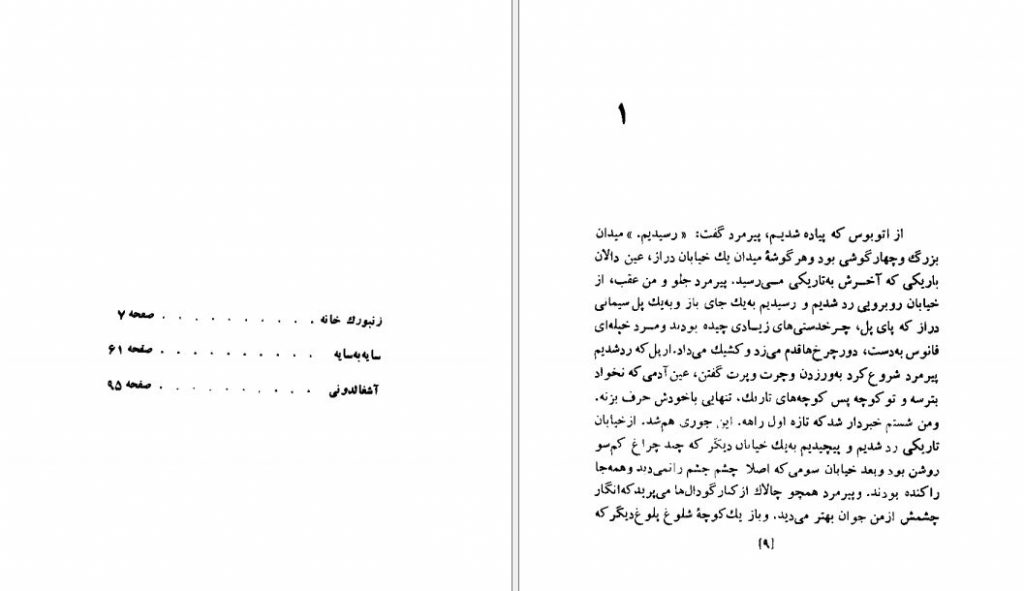 ۱
از اتوبوس که پیاده شدیم، پیرمرد گفت: «رسیدیم.» میدان
بزرگ وچهارگوشی بود وهر گوشهٔ میدان یك خیابان دراز، عین دالان
باریکی که آخرش به‌تاریکی می‌رسید. پیرمرد جلو و من عقب، از
خیابان روبرویی رد شدیم و رسیدیم به‌یك جای باز وبه‌یك پل سیمانی
دراز که پای پل، چرخدستی‌های زیادی چیده بودند ومرد خپله‌ای
فانوس به‌دست، دورچرخ‌ها قدم می‌زد و کشیك می‌داد. از پل که ردشدیم
پیرمرد شروع کرد به‌ورزدن وچرت وپرت گفتن، عین آدمی که نخواد
بترسه و تو کوچه پس کوچه‌های تاریك، تنهایی باخودش حرف بزنه.
ومن شستم خبردار شد که تازه اول راهه. این جوری هم‌شد. از خیابان
تاریکی رد شدیم و پیچیدیم به‌یك خیابان دیگر که چند چراغ کم‌سو
روشن بود وبعد خیابان سومی که اصلا چشم چشم را نمی‌دید وهمه‌جا
را کنده بودند. وپیرمرد همچو چالاك از کنار گودال‌ها می‌پرید که انگار
چشمش ازمن جوان بهتر می‌دید. وباز یك کوچهٔ شلوغ پلوغ دیگر که
[۹]
زنبورك خانه . . . . . . . . . . صفحه ۷
سایه‌به‌سایه . . . . . . . . . . صفحه ۶۱
آشغالدونی . . . . . . . . . . صفحه ۹۵